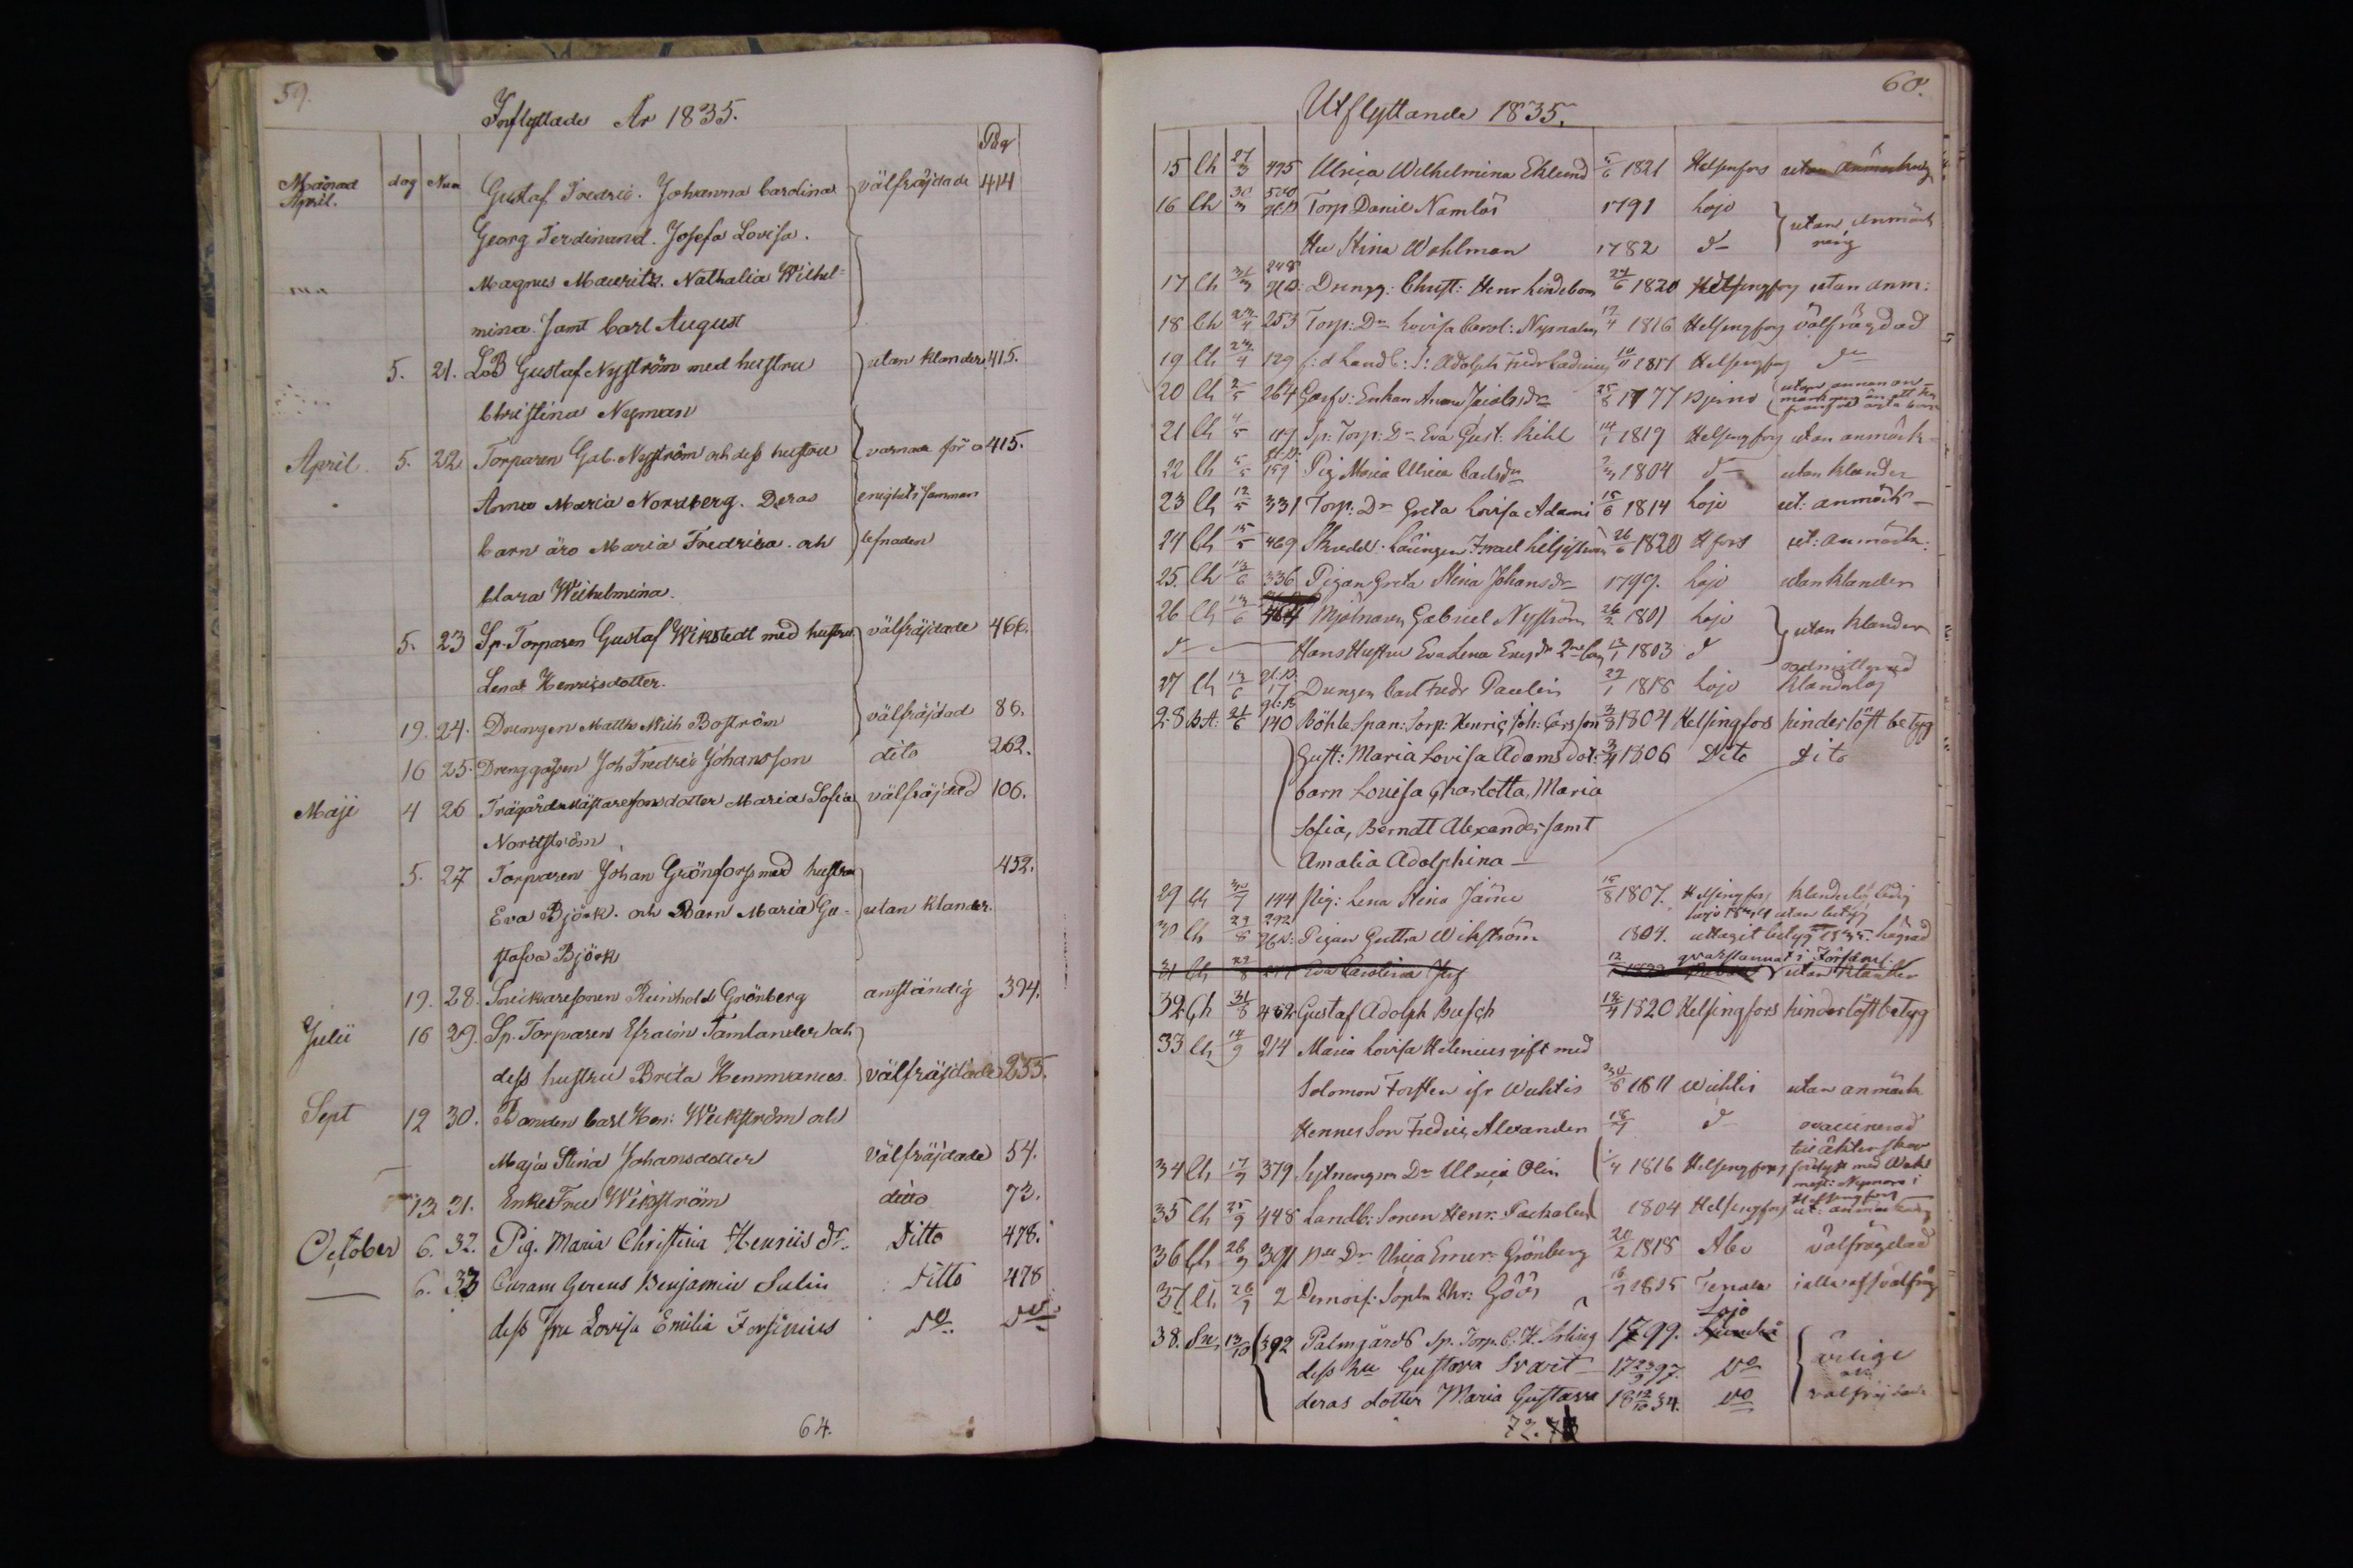 59.
Inflyttade År 1835.
Pag
Månad dag Num
April. Gustaf Fredric. Johanna Carolina välfräjdade 414
Georg Ferdinand. Josefa Lovisa.
Magnus Mauritz. Nathalia Wilhel=
mina. samt Carl August
5. 21. LB Gustaf Nyström med hustru utan klander 415.
Christina Nyman
April. 5. 22 Torparen Gab. Nyström och dess hustru varnade för o 415.
Anna Maria Nordberg. Deras enighet i samman
barn äro Maria Fredrica. och lefnaden
Clara Wilhelmina.
5. 23 Sp. Torparen Gustaf Wikstedt med hustru välfräjdade 466.
Lena Henricsdotter.
19. 24. Drengen Matths Mich Boström välfräjdad 86.
16 25. Drenggossen Joh Fredric Johansson dito 262.
Maji 4 26 Trägårdsmästaresonsdotter Maria Sofia välfräjdad 106.
Nordström
5. 27 Torparen Johan Grönfors med hustru 452.
Eva Björk. och Barn Maria Gu= utan klander.
stafva Björk
19. 28. Snickaresonen Reinhold Grönberg anständig 394.
Julii 16 29. Sp. Torparen Efraim Tamlander och
dess hustru Brita Hemmances. välfräjdade 255.
Sept 12 30. Bonden Carl Hen: Weckström och
Maja Stina Johansdotter välfräjdade 54.
13 31. Enke Fru Wikström ditto 72.
October 6. 32. Pig. Maria Christina Henrics dr. Ditto 478.
6. 33 Curam Gerens Benjamin Sulin Ditto 478
dess fru Lovisa Emilia Forsinius do do
64.
60.
Utflyttande 1835.
15 Ch 27/3 495 Ulrica Wilhelmina Eklund 5/6 1821 Helsinfors utan anmärkng
16 Ch 30/3 500 Torp Daniel Namlös 1791 Lojo utan anmärk
Hu Stina Wahlman 1782 d- ning
17 Ch 31/3 248 Drengg: Christ: Henr Lindebom 24/6 1820 Helsingfors utan anm:
18 Ch 23/4 253 Torp: Dr Lovisa Carol: Nyman 17/4 1816 Helsingfors välfrägdad
19 Ch 23/4 129 Adolph Fredr 10/11 1817 Helsingfors do
20 Ch 2/5 264 Enkan Anna Jacobsdr 25/8 1777 Bjerno utan annan an=
21 Ch 4/5 119 Sp: Torp: Dr Eva Gust: Kihl 14/1 1819 Helsingfors utan anmärk=
22 Ch 5/5 159 Pig Maria Ulrica Carlsdr 1804 d- utan klander
23 Ch 12/5 331 Torp: Dr Greta Lovisa Adami 15/6 1814 Lojo ut: anmärk-
24 Ch 15/5 469 Skredd. Läringen Israel Liljestrom 26/6 1820 Hfors ut: anmärk:
25. Ch 13/6 336 Pigan Greta Stina Johansdr 1799. Lojo utan klander
26 Ch 13/6 464 Mjölnaren Gabriel Nyström 26/2 1801 Lojo utan klander
d- Hans Hustru Eva Lena Ericsdr 13/1 1803 d
27 Ch 13/6 17 Drengen Carl Fredr Paulin 29/1 1818 Lojo oadmitterad
klanderlös
28 Att: 21/6 140 Böhle Span: Torp: Henric Joh: Carsson 3/3 1804 Helsingfors hinderlöst betyg
Hust: Maria Lovisa Adamsdot: 3/4 1806 Dito Dito
barn Lovisa Charlotta, Maria
Sofia, Berndt Alexander samt
Amalia Adolphina -
29 Ch 30/7 144 Pig: Lena Stina Järne 15/8 1807. Helsingfors Klanderlös ledig
30 Ch 29/8 292 Pigan Gustva Wikström 1804. uttagit betyg 1835.
31 Ch 29/8 Eva Carolina utan klander
32 Ch 31/8 452 Gustaf Adolph Busch 18/4 1820 Helsingfors hinderlöst betyg
33 Ch 14/9 214 Maria Lovisa Helenius gift med
Solomon Forsten ifr Wichtis 30/8 1811 Wichtis utan anmärk
Hennes Son Fredric Alexander 18/7 d- ovaccinerad
34 Ch 17/9 379 Sytningsm Dr Ulrica Olin 1816 Helsingfors till äktenskap
35 Ch 25/9 448 Landb: Sonen Henr: Packalen 1804 Helsingfors ut: anmärkng
36 Ch 26/9 391 Dr Ulrica Grönberg 20/2 1818 Åbo välfrägdad
37 Ch 26/9 2 Demois: Sophi Chr: Göös 1815 Tenala
38. Sn 13/10 392 Palmgårds Sp. Torp. C. H. Arling 1799. Lojo
dess hu Gustava Svart 17 23/9 97. do ärlige
deras dotter Maria Gustava 18 12/10 34. do välfräjdade
72.